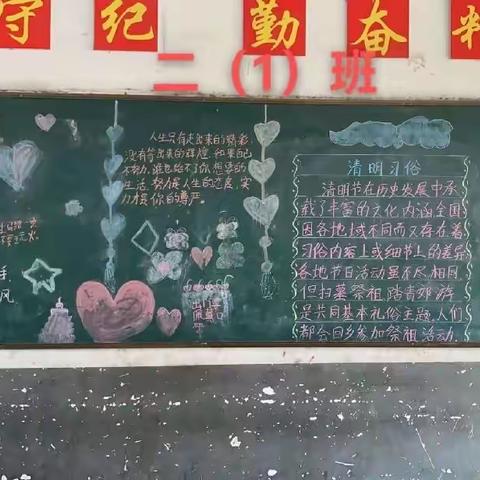 守 纪 勤 奋
二（1）班
人生只有走出来的精彩,
没有等出来的辉煌 如果自己
不努力,谁也给不了你想要的
生活,努力是人生的态度,实
力是你的尊严
手
风
出门
佩戴口
罩
清明习俗
清明节在历史发展中承
载了丰富的文化内涵全国
因各地域不同而又存在着
习俗内容上或细节上的差异
各地节日活动虽不尽相同,
但扫墓祭祖,踏青郊游
是共同基本礼俗主题,人们
都会回乡参加祭祖活动.